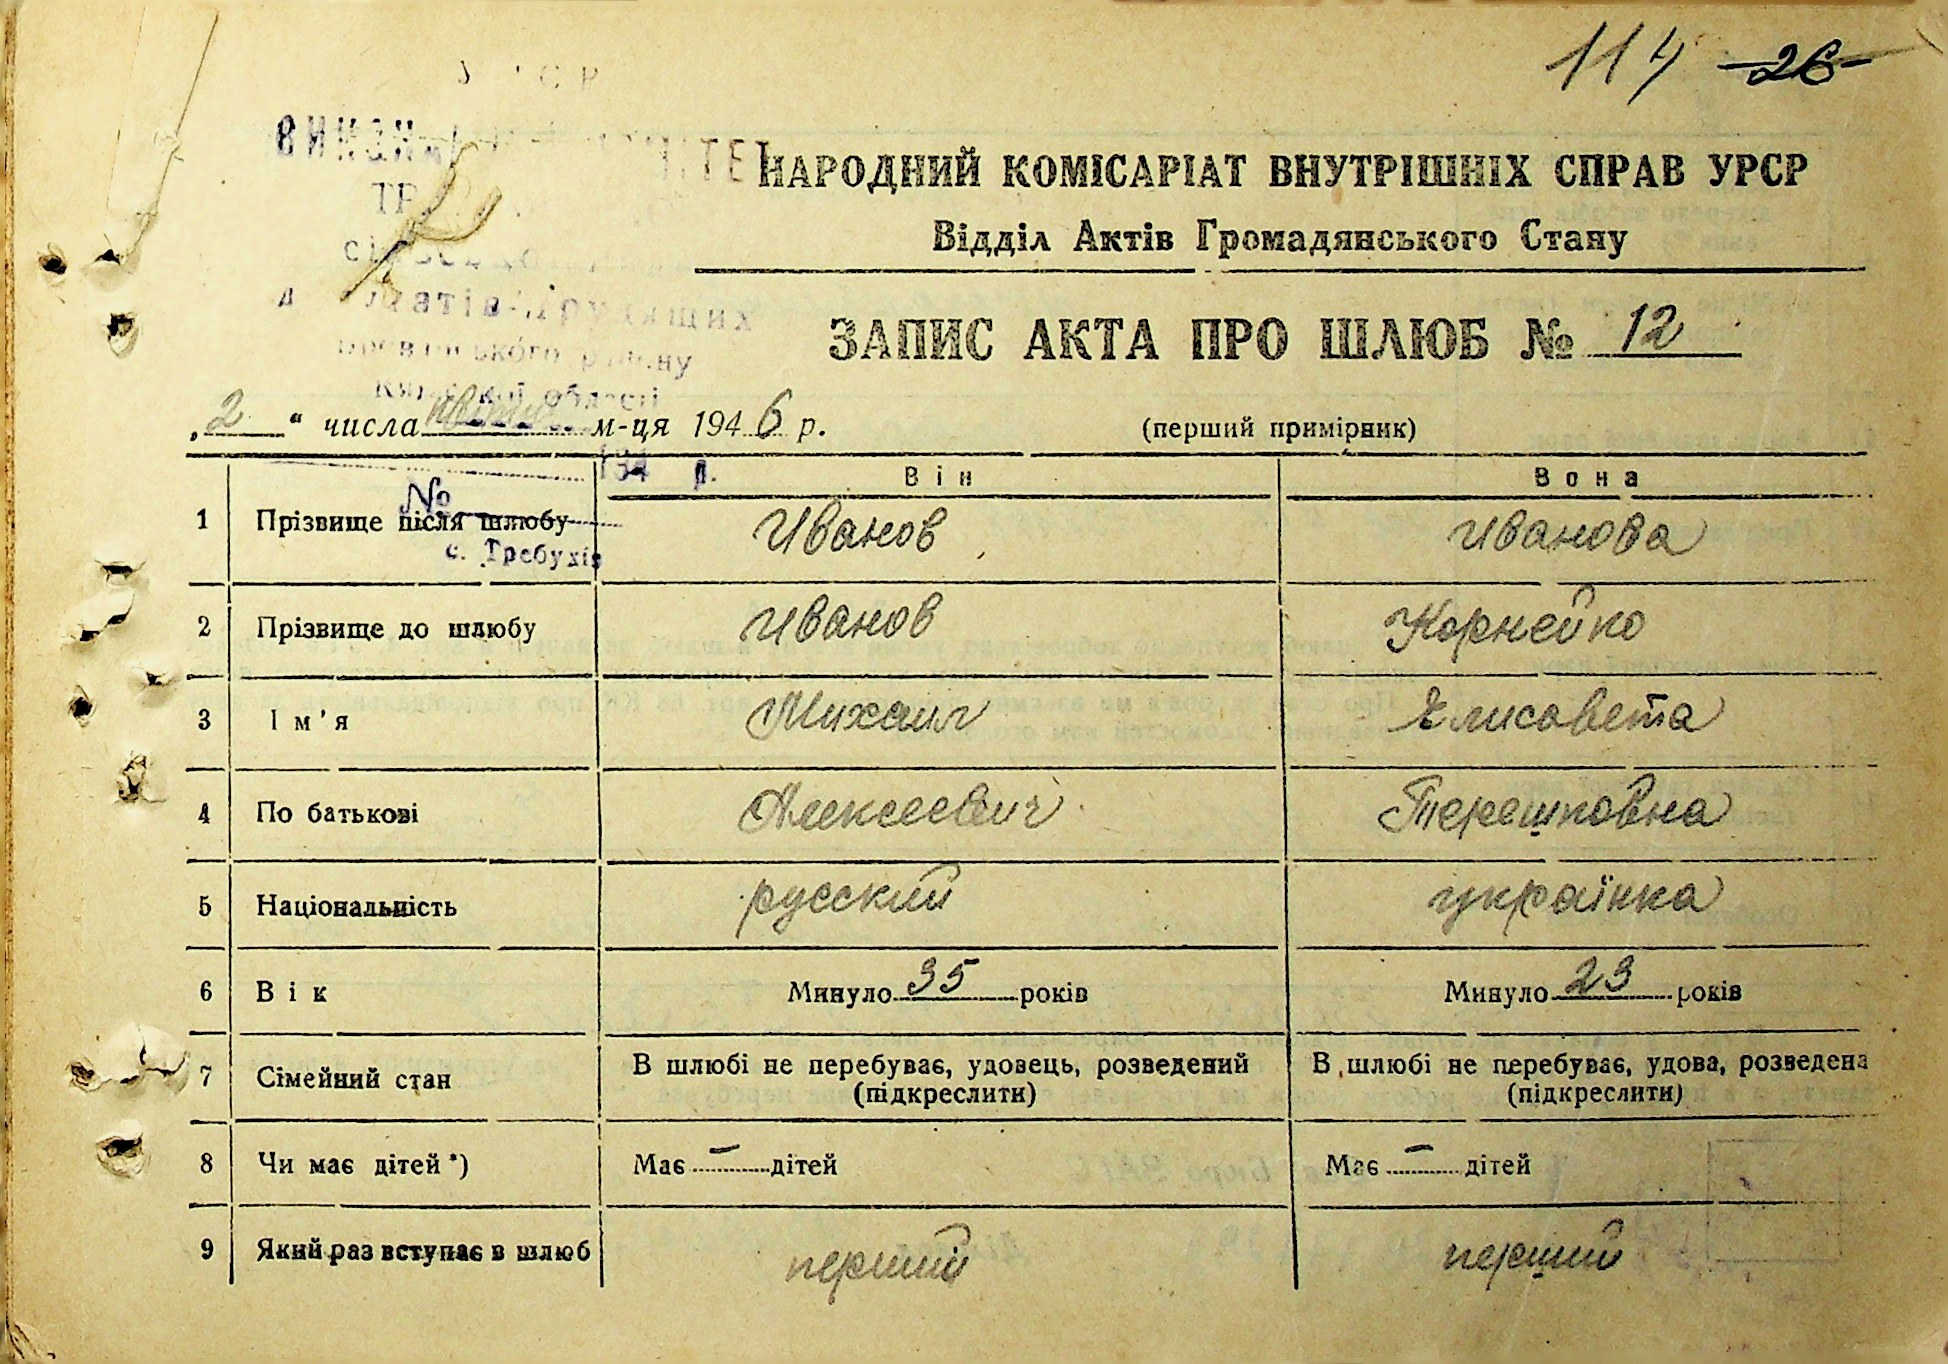 114 26
НАРОДНИЙ КОМІСАРІАТ ВНУТРІШНІХ СПРАВ УРСР
Відділ Актів Громадянського Стану
депутатів трудящих
району
області
ЗАПИС АКТА ПРО ШЛЮБ № 12
„2“ числа квітня м-ця 1946 р. (перший примірник)
194 р.
Він Вона
№
1 Прізвище після шлюбу Иванов Иванова
с. Требухів
2 Прізвище до шлюбу Иванов Корнейко
3 Ім'я Михаил Елисавета
4 По батькові Алексеевич Терешковна
5 Національність русский українка
6 Вік Минуло 35 років Минуло 23 років
7 Сімейний стан В шлюбі не перебуває, удовець, розведений (підкреслити) В шлюбі не перебуває, удова, розведена (підкреслити)
8 Чи має дітей*) Має – дітей Має – дітей
9 Який раз вступає в шлюб перший перший